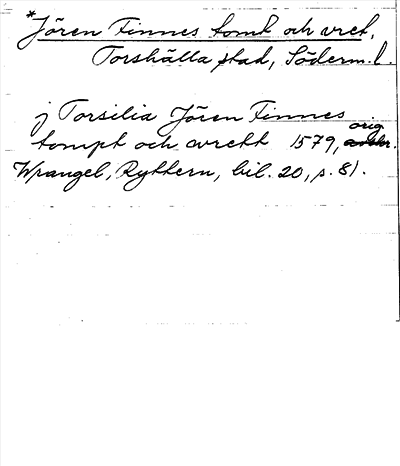 *Jören Finnes tomt och vret,
Torshälla stad, Söderm.l.
j Torsilia Jören Finnes
tompt och vrett 1579, orig.
Wrangel, Ryttern, bil. 20, s. 81.